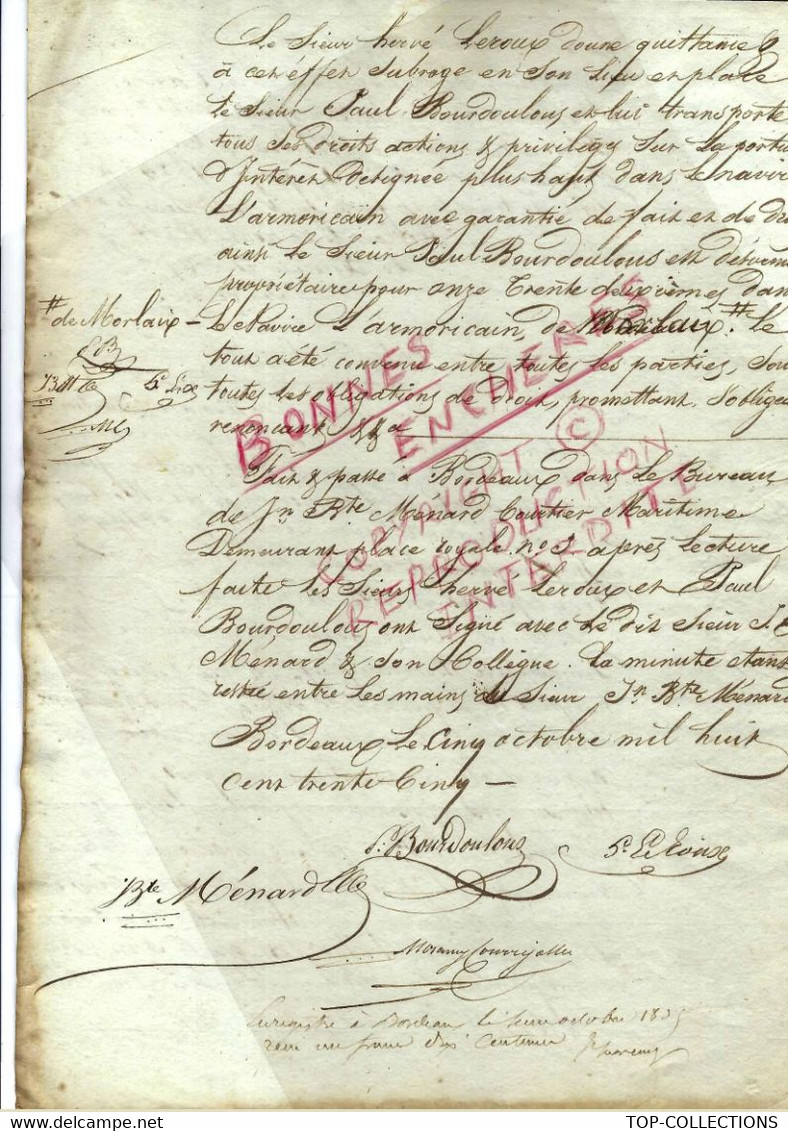 Le Sieur hervé Leroux donne quittance &
à cet éffet Subroge en Son Lieu et place
Le Sieur Paul Bourdoulous et lui transporte
tous Ses droits actions & privilèges Sur La portio
d'Intérêt Désignée plus haut dans le navire
L'armoricain avec garantie de fait et de dro
ainsi Le Sieur Paul Bourdoulous est dévenu
propriétaire pour onze trente deuxièmes dans
Le Navire L'armoricain, de Le
# de Morlaix
tout a été convenu entre toutes les parties, Sou
toutes les obligations de droit, promettant, S'obligea
renoncant &&a
BONNES
ENCHERES
Fait & passé à Bordeaux dans Le Bureau
de Jn Bte Ménard Courtier Maritime
Demeurant place royale no après Lecture
faite Les Sieurs hervé Leroux et Paul
Bourdoulous ont Signé avec Le dit Sieur J.
Ménard & Son Collègue. La minute étant
restée entre Les mains du Sieur Jn Bte Ménard
COPYRIGHT ©
REPRODUCTION
INTERDITE
Bordeaux Le Cinq octobre mil huit
cent trente Cinq —
P. Bourdoulous
Bte Ménard
Enregistré à Bordeaux Le octobre 1835
reçu un franc dix Centimes
TOP-COLLECTIONS